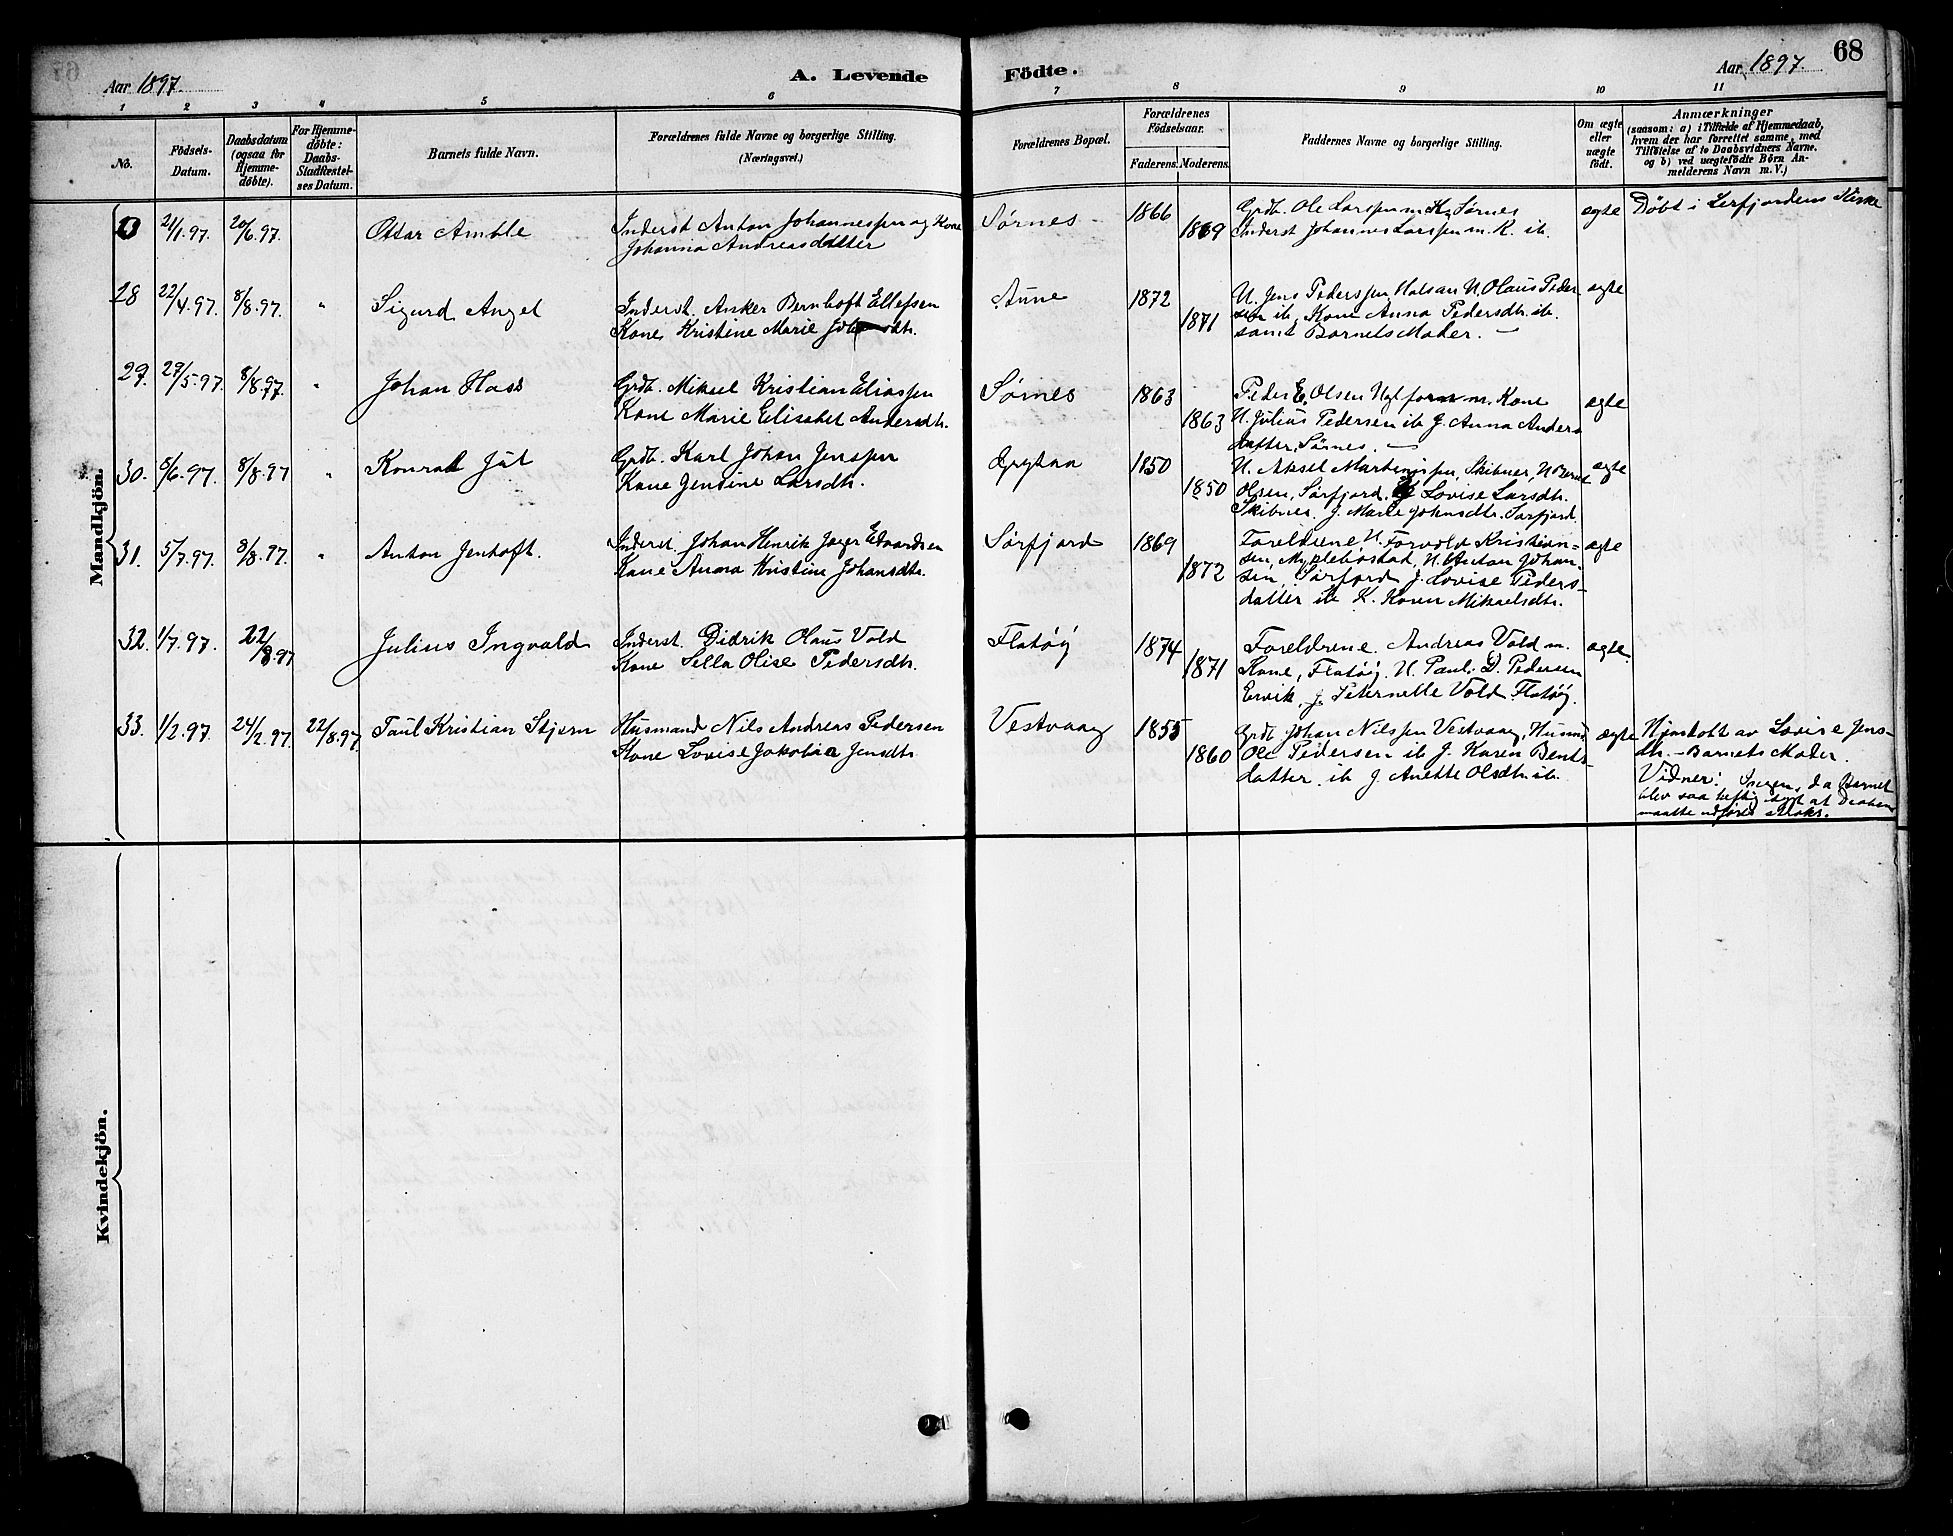 68
Aar 1897.
A. Levende
Födte.
Aar 1897.
1 2 3 4 5 6 7 8 9 10 11
No.
Födsels-
Datum.
Daabsdatum
(ogsaa for
Hjemme-
döbte).
For Hjemme-
döbte:
Daabs-
Stadfæstel-
ses Datum.
Barnets fulde Navn.
Forældrenes fulde Navne og borgerlige Stilling.
(Næringsvei.)
Forældrenes Bopæl.
Forældrenes
Födselsaar.
Faderens. Moderens.
Faddernes Navne og borgerlige Stilling.
Om ægte
eller
uægte
født.
Anmærkninger
(saasom: a) i Tilfælde af Hjemmedaab,
hvem der har forrettet samme, med
Tilføielse af to Daabsvidners Navne.
og b) ved uægtefödte Börn An-
melderens Navn m. V.)
Mandkjön.
21/1.97. 20/6.97. Ottar Amble
Inderst Anton Johannessen og Kone
Johanna Andreasdatter
Sørnes 1866 1869
Grdb. Ole Larssen m. K. Sørnes
Inderst Johannes Larssen m. K. ib.
ægte
Døbt i Lerfjordens Kirke
28 22/4.97. 8/8.97. " Sigurd Angel
Inderst. Anker Bernhoft Ellefsen
Kone Kristine Marie
Aune 1872 1871
U. Jens Pederssen Halsan U. Olaus Peder-
sen ib, Kone Anna Pedersdtr. ib.
samt Barnets Moder. —
ægte
29. 27/5.97. 8/8.97. " Johan Hass
Grdb. Mikael Kristian Eliassen
Kone Marie Elisabet Andersdtr.
Sørnes 1863 1863
Peder E. Olsen m. Kone
U. Julius Pedersen ib J. Anna Anders
datter, Sørnes. —
ægte
30. 8/6.97. 8/8.97 " Konrad Jul
Grdb. Karl Johan Jenssen
Kone Jensine Larsdtr.
Grytaa 1850 1850
U. Aksel Martinussen, Skibnes, U. Bernt
Olsen, Sørfjord, Lovise Larsdtr.
Skibnes. J. Marie Johnsdtr. Sørfjord.
ægte
31. 5/7.97. 8/8.97. " Anton Jenhoft.
Inderst. Johan Henrik Jæger Edvardsen
Kone Anna Kristine Johansdtr.
Sørfjord 1869 1872
Foreldrene U. Torvald Kristian-
sen, Myklebostad, U. Anton Johan-
sen, Sørfjord J. Lovise Peders-
datter ib K. Karen Mikaelsdtr.
ægte
32. 1/7.97. 22/8.97 Julius Ingvald
Inderst. Didrik Olaus Vold
Kone Sella Olise Pedersdtr.
Flatøy 1874 1871
Foreldrene. Andreas Vold m.
Kone, Flatøy. U. Paul D. Pedersen
Ervik, J. Peternelle Vold Flatøy.
ægte.
33. 1/2.97. 24/2.97. 22/8.97 Paul Kristian Stjern
Husmand Nils Andreas Pedersen
Kone Lovise Jakobæa Jensdtr.
Vestvaag 1855 1860
Grdb. Johan Nilssen Vestvaag, Husmd
Ole Pedersen ib J. Karen Bents-
datter. ib J. Anette Olsdtr. ib.
ægte
Hjemdøbt av Lovise Jens-
dtr. – Barnets Moder.
Vidner: Ingen, da Barnet
blev saa heftig sygt at Daaben
maatte udføres straks.
Kvindekjön.